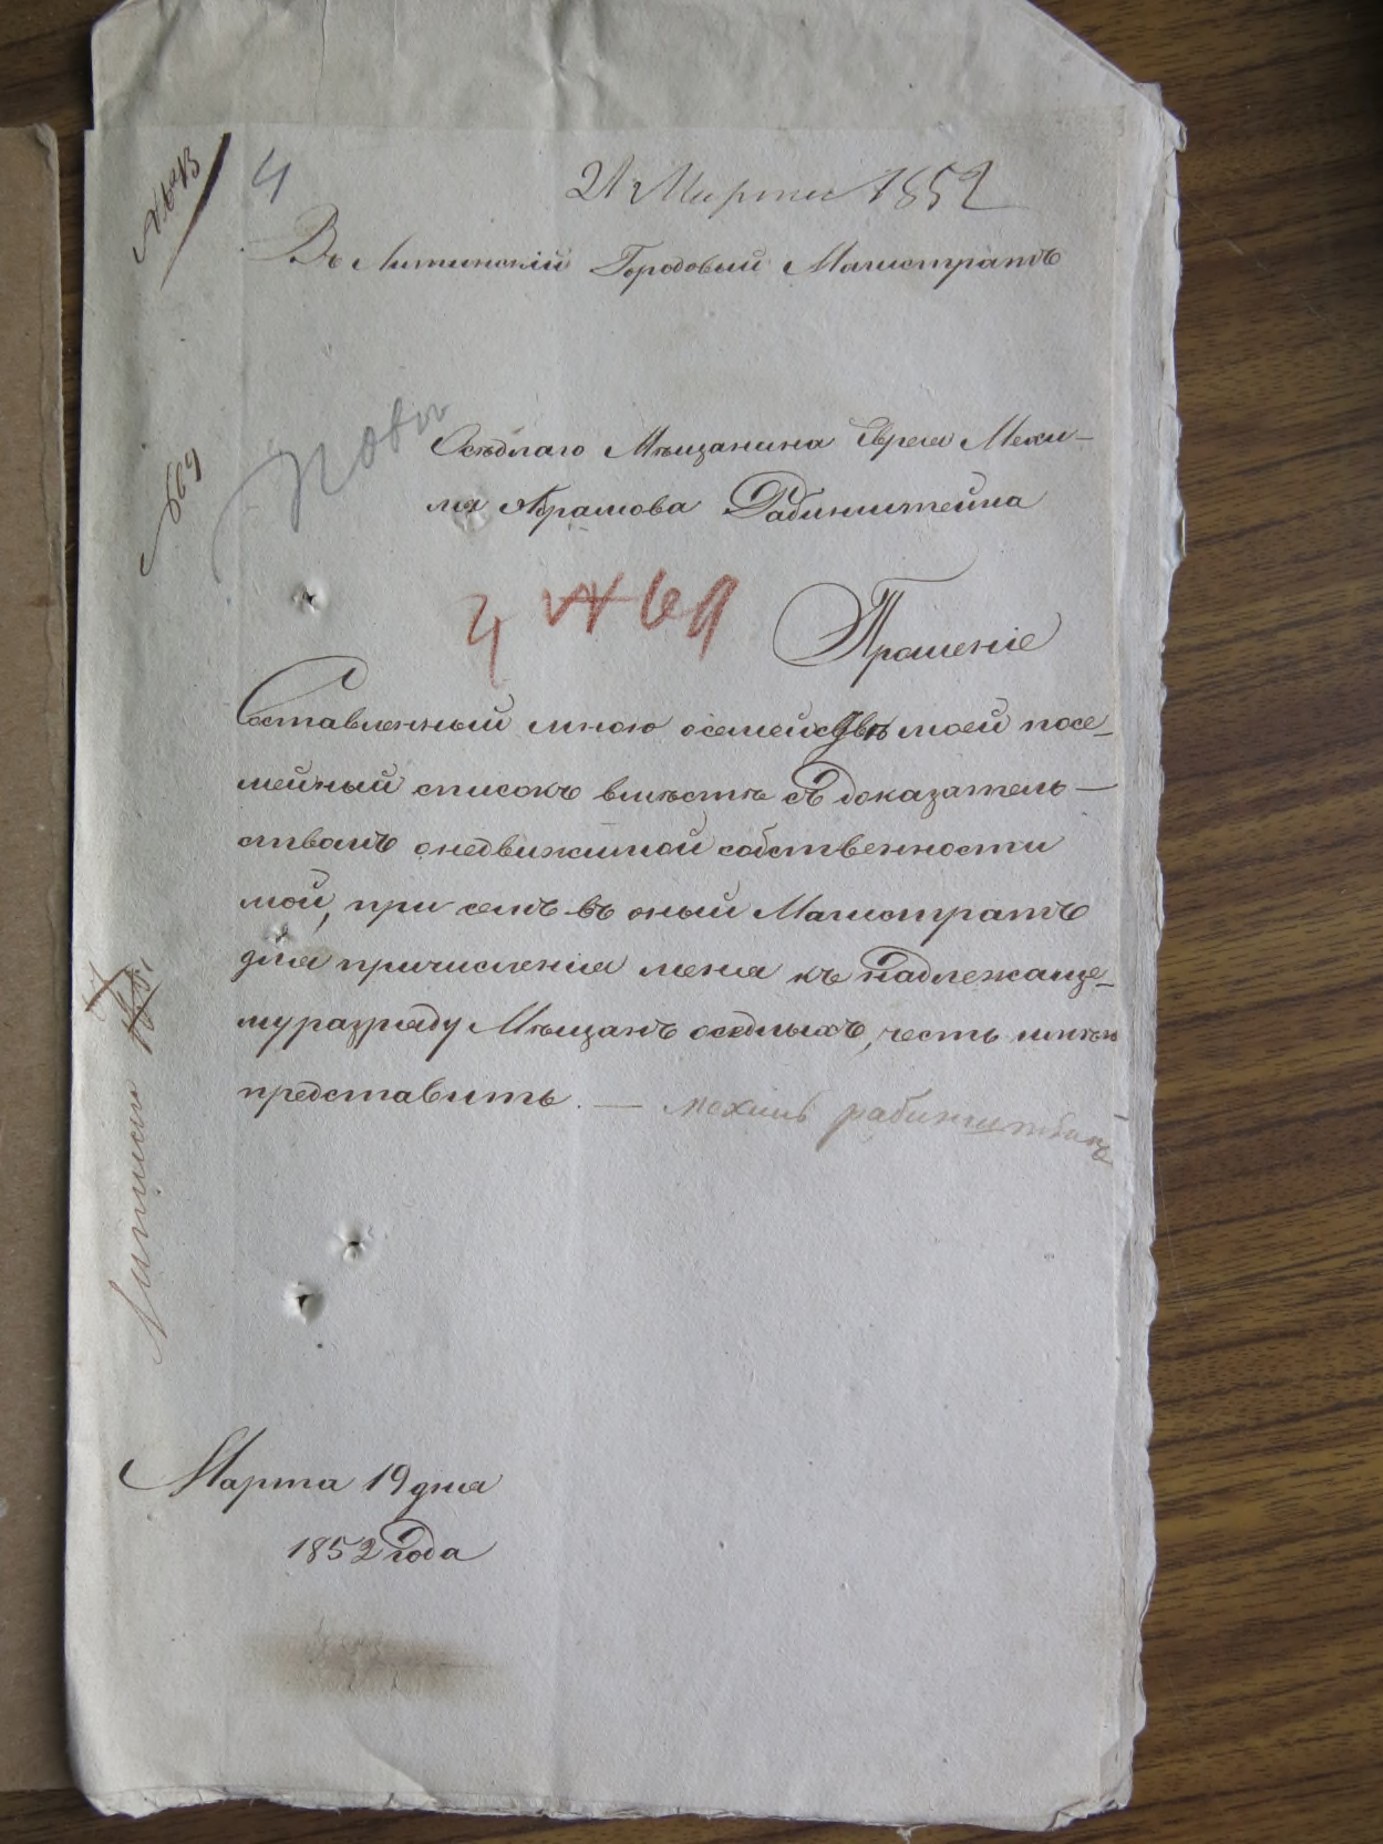 4
21 Марта 1852
Въ Литинскій Городовый Магистратъ
Осѣдлаго Мѣщанина Еврея Мехи-
ля Абрамова Рабинштейна
4 № 69
Прошеніе
Составленный мною осемействѣ моей посе-
мейный списокъ вмѣстѣ съ доказатель-
ствомъ онедвижимой собственности
мой, при семъ въ оный Магистратъ
для причисленія меня къ надлежаще-
му разряду Мѣщанъ оседлыхъ, честь имѣю
представить. — Мехиль рабинштейнъ
Марта 19 дня
1852 года